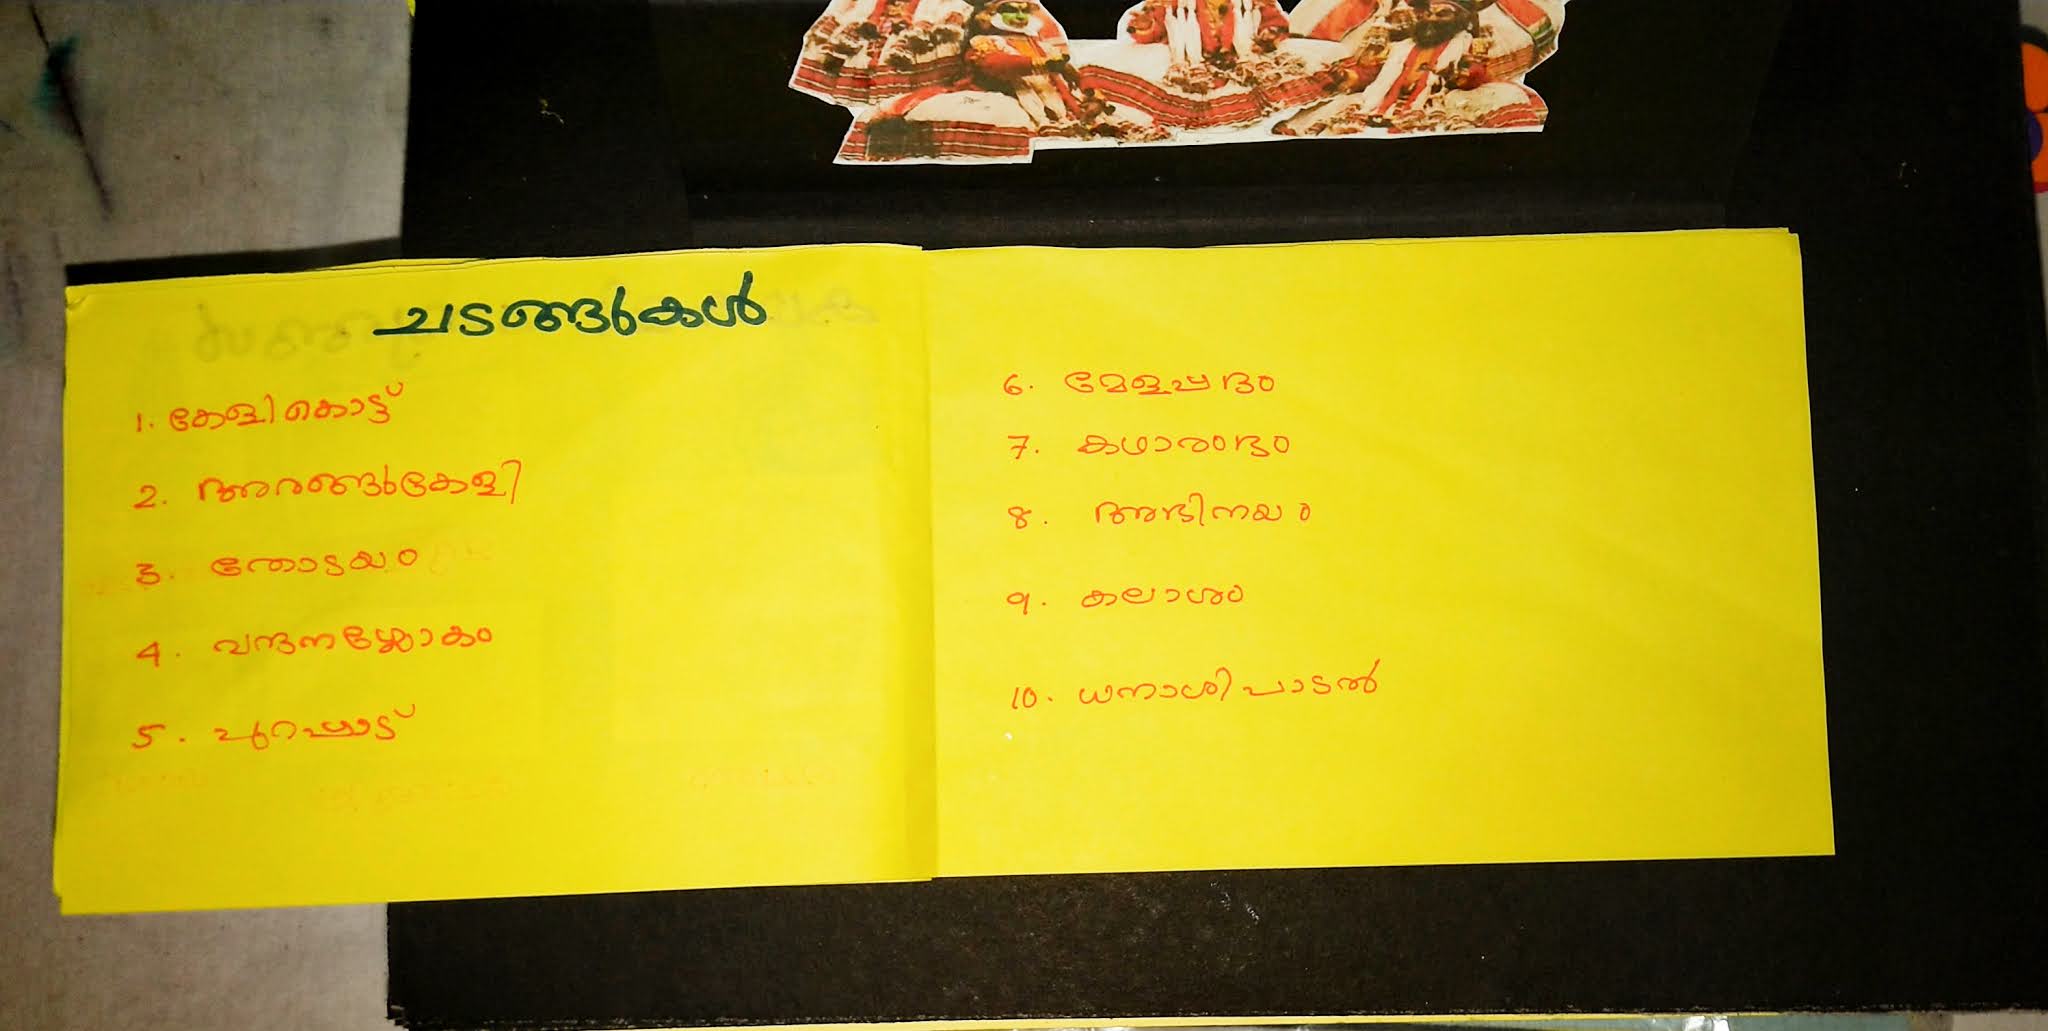 ചടങ്ങുകൾ
1. കേളികൊട്ട്
2. അരങ്ങുകേളി
3. തോടയം
4. വന്ദനശ്ലോകം
5. പുറപ്പാട്
6. മേളപ്പദം
7. കഥാരംഭം
8. അഭിനയം
9. കലാശം
10. ധനാശിപാടൽ